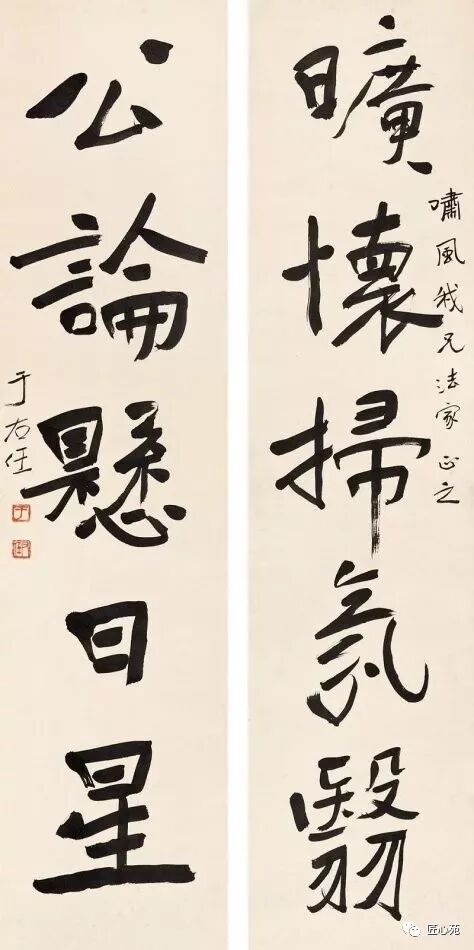 曠懷掃氛翳
嘯風我兄法家正之
公論懸日星
于右任
匠心苑